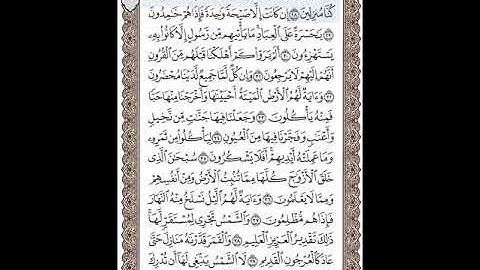 كُنَّا مُنزِلِينَ ٢٨ إِن كَانَتْ إِلَّا صَيْحَةً وَاحِدَةً فَإِذَا هُمْ خَامِدُونَ
٢٩ يَا حَسْرَةً عَلَى الْعِبَادِ مَا يَأْتِيهِم مِّن رَّسُولٍ إِلَّا كَانُوا بِهِ
يَسْتَهْزِءُونَ ٣٠ أَلَمْ يَرَوْا كَمْ أَهْلَكْنَا قَبْلَهُم مِّنَ الْقُرُونِ
أَنَّهُمْ إِلَيْهِمْ لَا يَرْجِعُونَ ٣١ وَإِن كُلٌّ لَّمَّا جَمِيعٌ لَّدَيْنَا مُحْضَرُونَ
٣٢ وَءَايَةٌ لَّهُمُ الْأَرْضُ الْمَيْتَةُ أَحْيَيْنَاهَا وَأَخْرَجْنَا مِنْهَا حَبًّا
فَمِنْهُ يَأْكُلُونَ ٣٣ وَجَعَلْنَا فِيهَا جَنَّاتٍ مِّن نَّخِيلٍ
وَأَعْنَابٍ وَفَجَّرْنَا فِيهَا مِنَ الْعُيُونِ ٣٤ لِيَأْكُلُوا مِن ثَمَرِهِ
وَمَا عَمِلَتْهُ أَيْدِيهِمْ أَفَلَا يَشْكُرُونَ ٣٥ سُبْحَانَ الَّذِي
خَلَقَ الْأَزْوَاجَ كُلَّهَا مِمَّا تُنبِتُ الْأَرْضُ وَمِنْ أَنفُسِهِمْ
وَمِمَّا لَا يَعْلَمُونَ ٣٦ وَءَايَةٌ لَّهُمُ اللَّيْلُ نَسْلَخُ مِنْهُ النَّهَارَ
فَإِذَا هُم مُّظْلِمُونَ ٣٧ وَالشَّمْسُ تَجْرِي لِمُسْتَقَرٍّ لَّهَا
ذَٰلِكَ تَقْدِيرُ الْعَزِيزِ الْعَلِيمِ ٣٨ وَالْقَمَرَ قَدَّرْنَاهُ مَنَازِلَ حَتَّىٰ
عَادَ كَالْعُرْجُونِ الْقَدِيمِ ٣٩ لَا الشَّمْسُ يَنبَغِي لَهَا أَن تُدْرِكَ